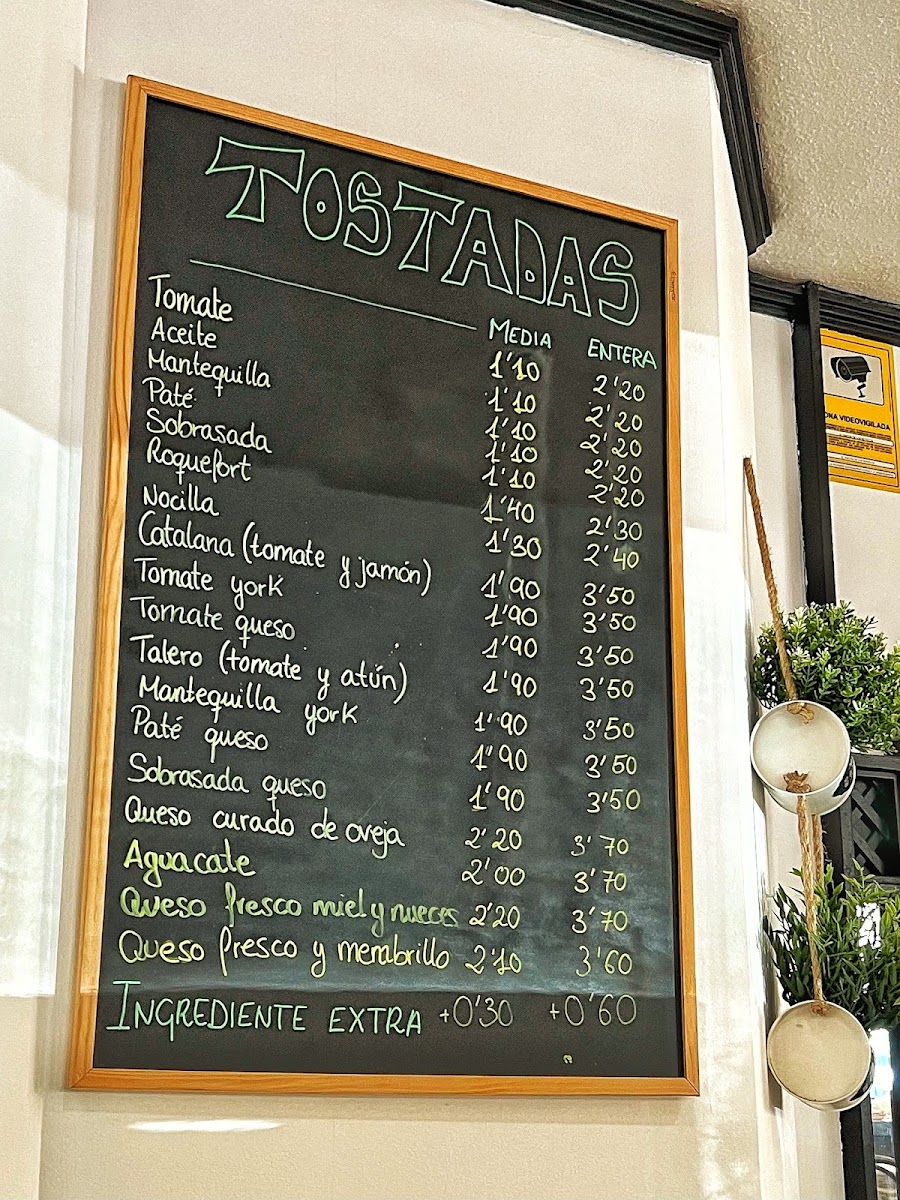 TOSTADAS
MEDIA ENTERA
Tomate 1'10 2'20
Aceite 1'10 2'20
Mantequilla 1'10 2'20
Paté 1'10 2'20
Sobrasada 1'10 2'20
Roquefort 1'40 2'30
Nocilla 1'30 2'40
Catalana (tomate y jamón) 1'90 3'50
Tomate york 1'90 3'50
Tomate queso 1'90 3'50
Talero (tomate y atún) 1'90 3'50
Mantequilla york 1'90 3'50
Paté queso 1'90 3'50
Sobrasada queso 1'90 3'50
Queso curado de oveja 2'20 3'70
Aguacate 2'00 3'70
Queso fresco miel y nueces 2'20 3'70
Queso fresco y membrillo 2'10 3'60
INGREDIENTE EXTRA +0'30 +0'60
ONA VIDEOVIGILADA